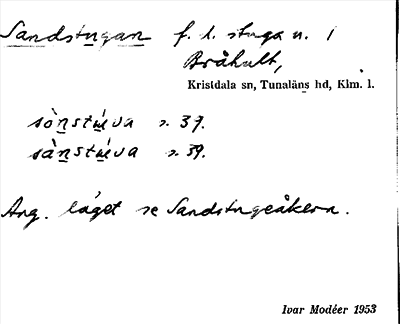 Sandstugan f. l. stuga u. i
Bråhult,
Kristdala sn, Tunaläns hd, Klm. l.
sònstúva s. 37.
sànstúva s. 39.
Ang. läget se Sandstugeåkern.
Ivar Modéer 1953